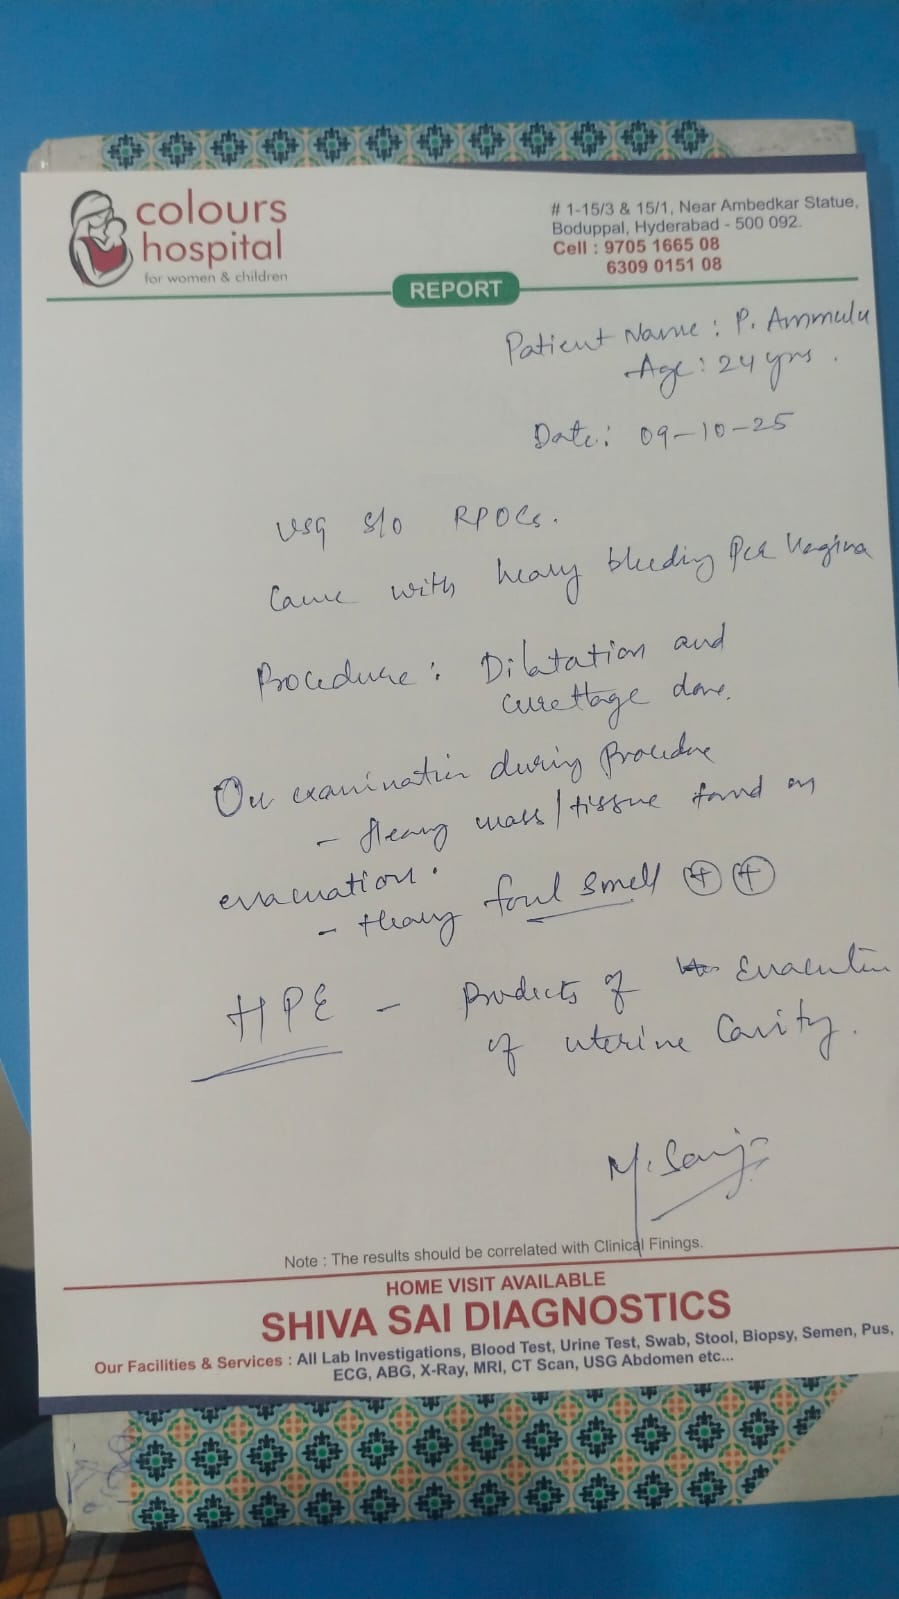 colours
hospital
for women & children
# 1-15/3 & 15/1, Near Ambedkar Statue,
Boduppal, Hyderabad - 500 092.
Cell : 9705 1665 08
6309 0151 08
REPORT
Patient Name : P. Ammulu
Age : 24 yrs.
Date : 09-10-25
USG S/O RPOCs.
Came with heavy bleeding Per Vagina
Procedure : Dilatation and
curettage done.
On examination during Procedure
- Heavy mass/tissue found on
evacuation.
- Heavy foul smell + +
HPE - Products of Evacuation
of uterine Cavity.
Note : The results should be correlated with Clinical Finings.
HOME VISIT AVAILABLE
SHIVA SAI DIAGNOSTICS
Our Facilities & Services : All Lab Investigations, Blood Test, Urine Test, Swab, Stool, Biopsy, Semen, Pus,
ECG, ABG, X-Ray, MRI, CT Scan, USG Abdomen etc...